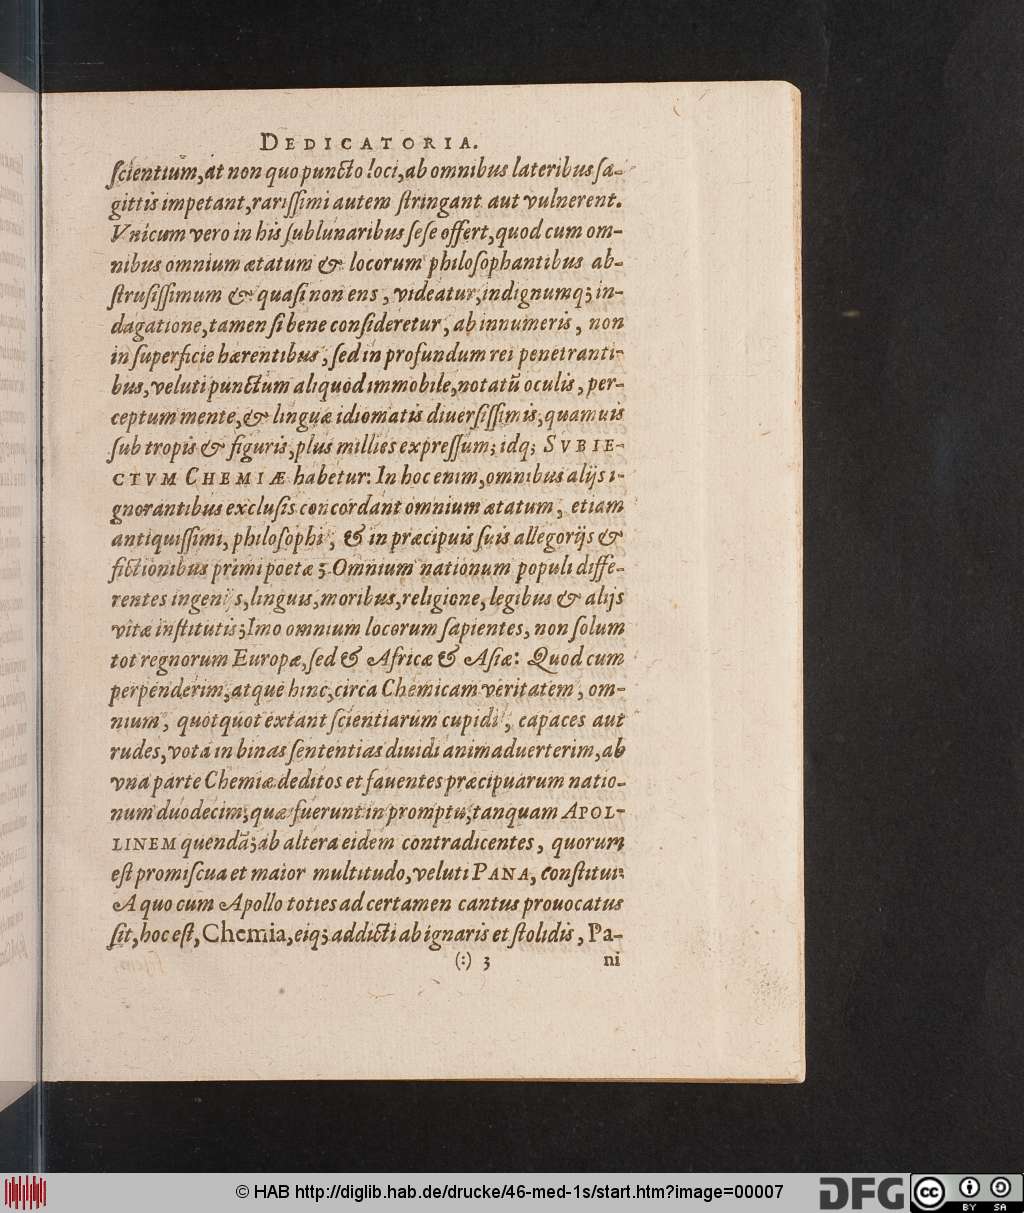 DEDICATORIA.
ſcientium, at non quo puncto loci, ab omnibus lateribus ſa-
gittis impetant, rariſſimi autem ſtringant aut vulnerent.
Vnicum vero in his ſublunaribus ſeſe offert, quod cum om-
nibus omnium ætatum & locorum philoſophantibus ab-
ſtruſiſſimum & quaſi non ens, videatur, indignumq; in-
dagatione, tamen ſi bene conſideretur, ab innumeris, non
in ſuperficie hærentibus, ſed in profundum rei penetranti-
bus, veluti punctum aliquod immobile, notatū oculis, per-
ceptum mente, & linguæ idiomatis diuerſiſſimis, quamuis
ſub tropis & figuris, plus millies expreſſum; idq; SVBIE-
CTVM CHEMIÆ habetur: In hoc enim, omnibus alijs i-
gnorantibus excluſis concordant omnium ætatum, etiam
antiquiſſimi, philoſophi, & in præcipuis ſuis allegorijs &
fictionibus primi poetæ; Omnium nationum populi diffe-
rentes ingenijs, linguis, moribus, religione, legibus & alijs
vitæ inſtitutis; Imo omnium locorum ſapientes, non ſolum
tot regnorum Europæ, ſed & Africæ & Aſiæ: Quod cum
perpenderim, atque hinc, circa Chemicam veritatem, om-
nium, quotquot extant ſcientiarum cupidi, capaces aut
rudes, vota in binas ſententias diuidi animaduerterim, ab
vna parte Chemiæ deditos et fauentes præcipuarum natio-
num duodecim, quæ fuerunt in promptu, tanquam APOL-
LINEM quendā; ab altera eidem contradicentes, quorum
eſt promiſcua et maior multitudo, veluti PANA, conſtitui:
A quo cum Apollo toties ad certamen cantus prouocatus
ſit, hoc eſt, Chemia, eiq; addicti ab ignaris et ſtolidis, Pa-
(:) 3 ni
© HAB http://diglib.hab.de/drucke/46-med-1s/start.htm?image=00007
DFG
cc BY SA